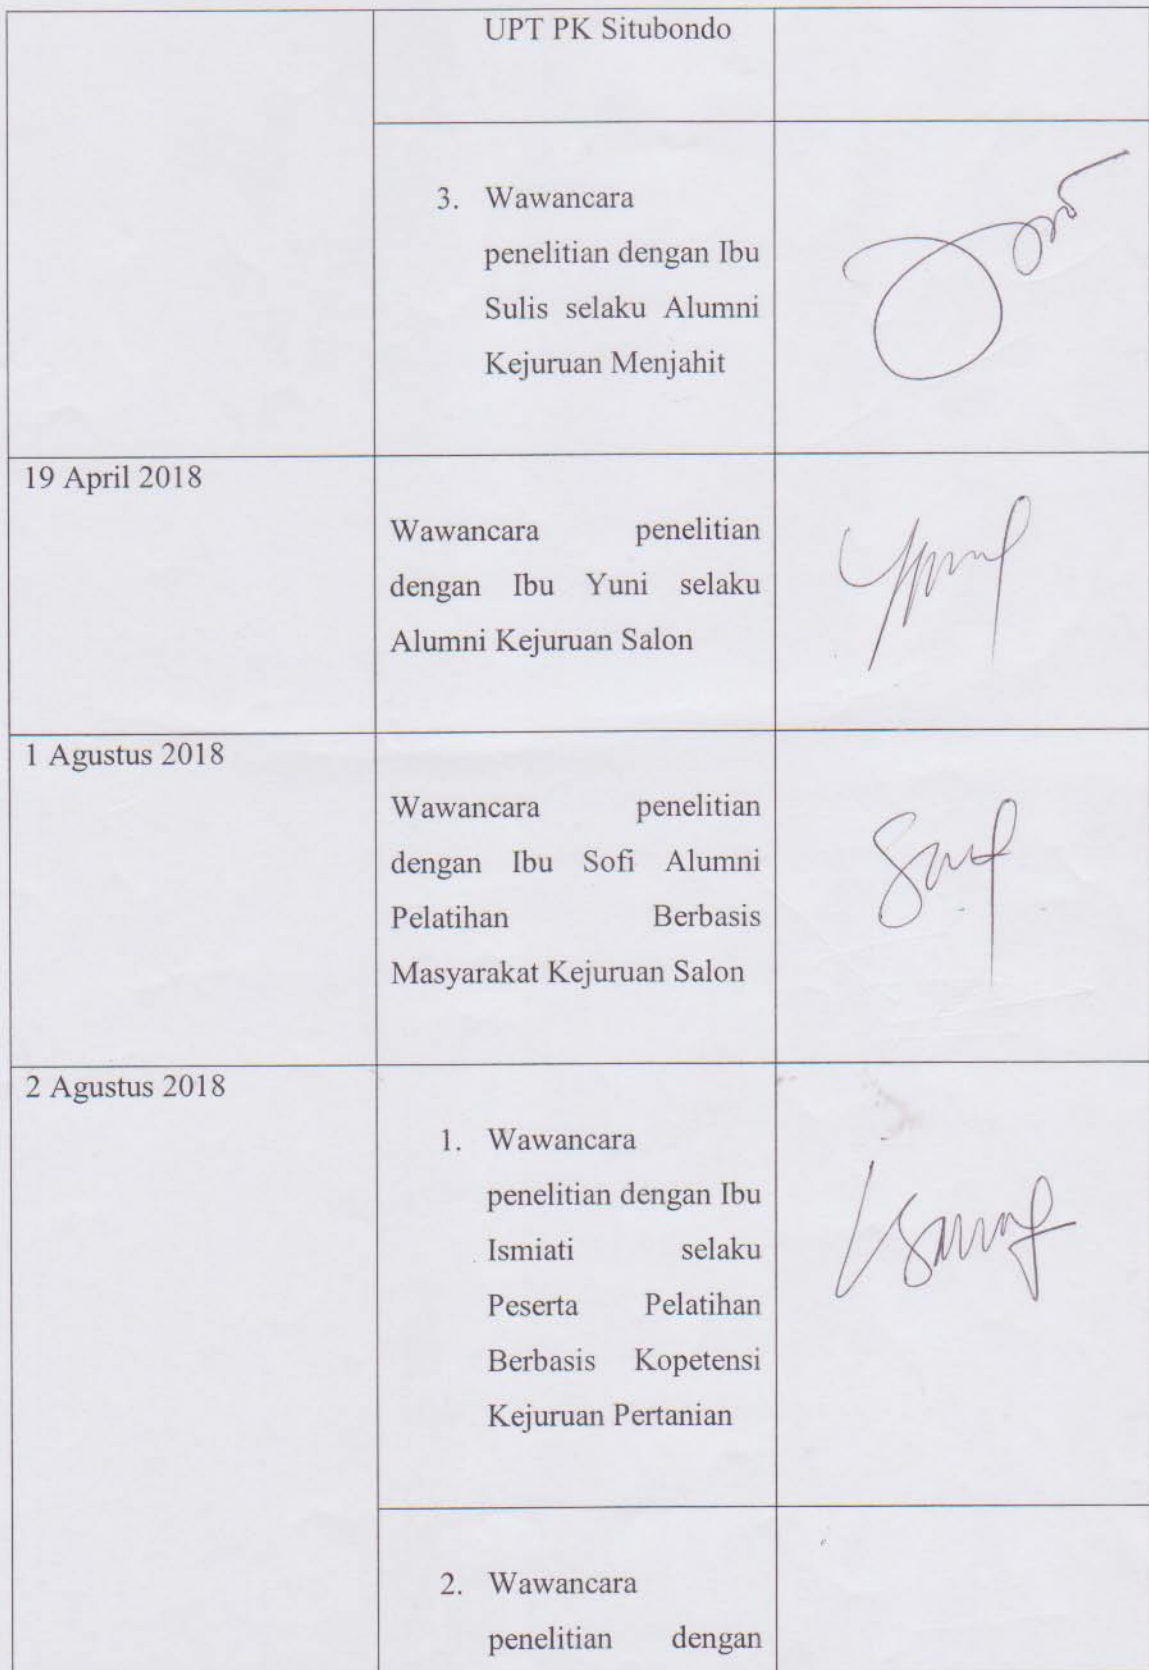 UPT PK Situbondo
3. Wawancara
penelitian dengan Ibu
Sulis selaku Alumni
Kejuruan Menjahit
19 April 2018
Wawancara penelitian
dengan Ibu Yuni selaku
Alumni Kejuruan Salon
1 Agustus 2018
Wawancara penelitian
dengan Ibu Sofi Alumni
Pelatihan Berbasis
Masyarakat Kejuruan Salon
2 Agustus 2018
1. Wawancara
penelitian dengan Ibu
Ismiati selaku
Peserta Pelatihan
Berbasis Kopetensi
Kejuruan Pertanian
2. Wawancara
penelitian dengan